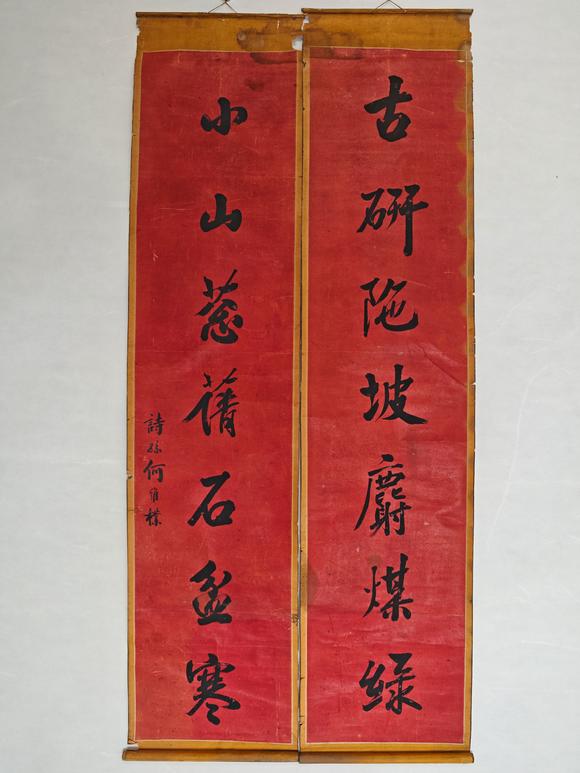 古研陁坡麝煤綠
小山葱蒨石盆寒
詩孫何維樸